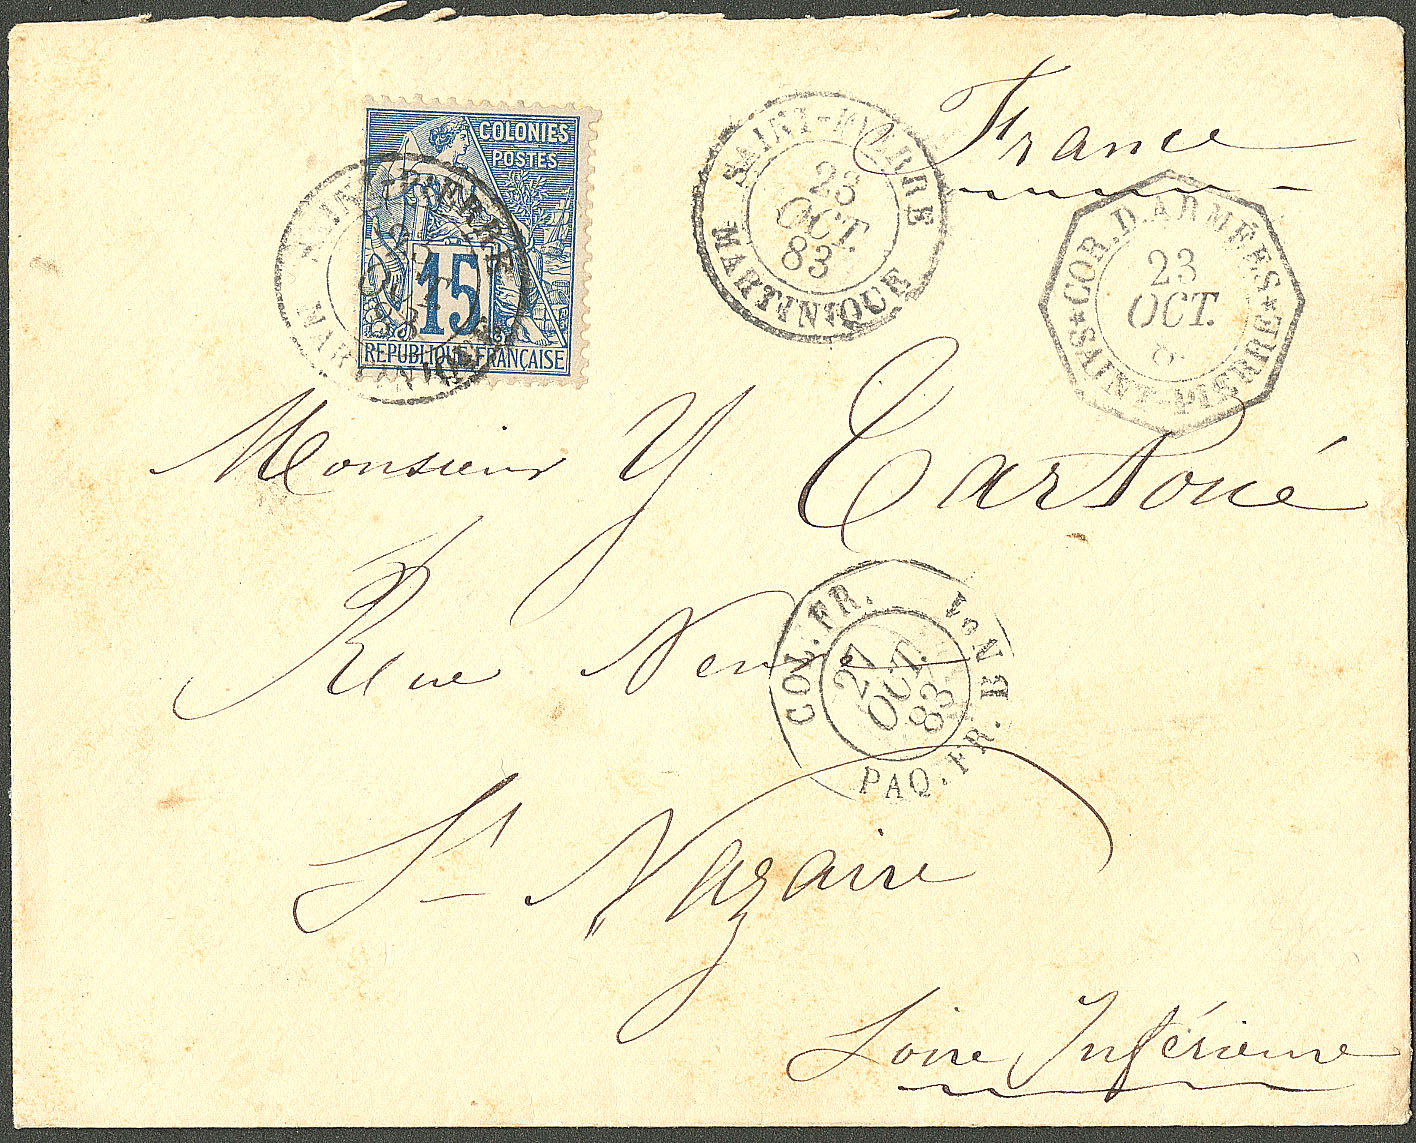 France
COLONIES
POSTES
15
REPUBLIQUE FRANÇAISE
SAINT-PIERRE
23
OCT.
83
MARTINIQUE
SAINT-PIERRE
23
OCT.
83
MARTINIQUE
COR. D. ARMÉES
23
OCT.
8
SAINT-PIERRE
Monsieur Y
Rue
COL. FR.
27
OCT.
83
PAQ. FR. B No 1
St Nazaire
Loire Inférieure